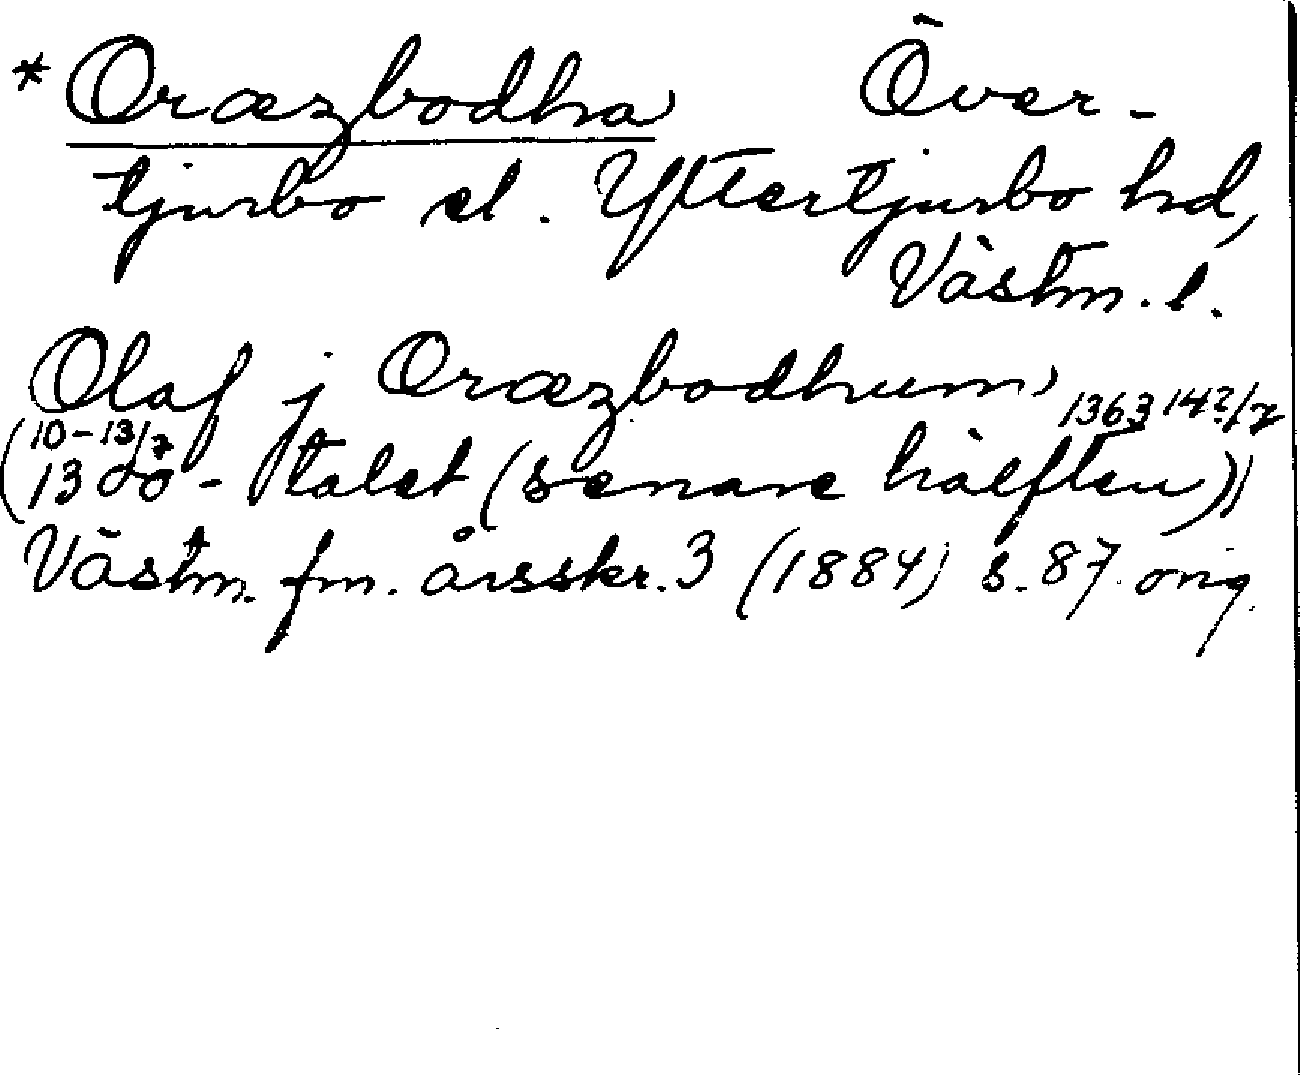 * Oræzbodha Över-
tjurbo el. Yttertjurbo hd,
Västm. l.
Olaf j Oræzbodhum, 1363 14?/7
(10-13/7
1300-talet (senare hälften))
Västm. fm. årsskr. 3 (1884) s. 87. orig.